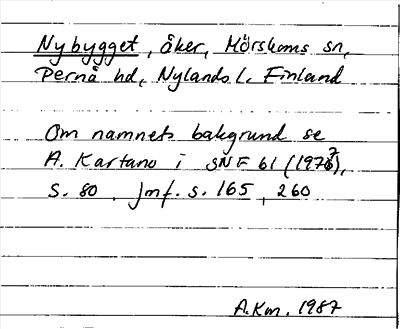 Nybygget, åker, Mörskoms sn,
Pernå hd, Nylands l. Finland
Om namnets bakgrund se
A. Kartano i SNF 61 (1977),
s. 80. Jmf. s. 165, 260
A.Km. 1987